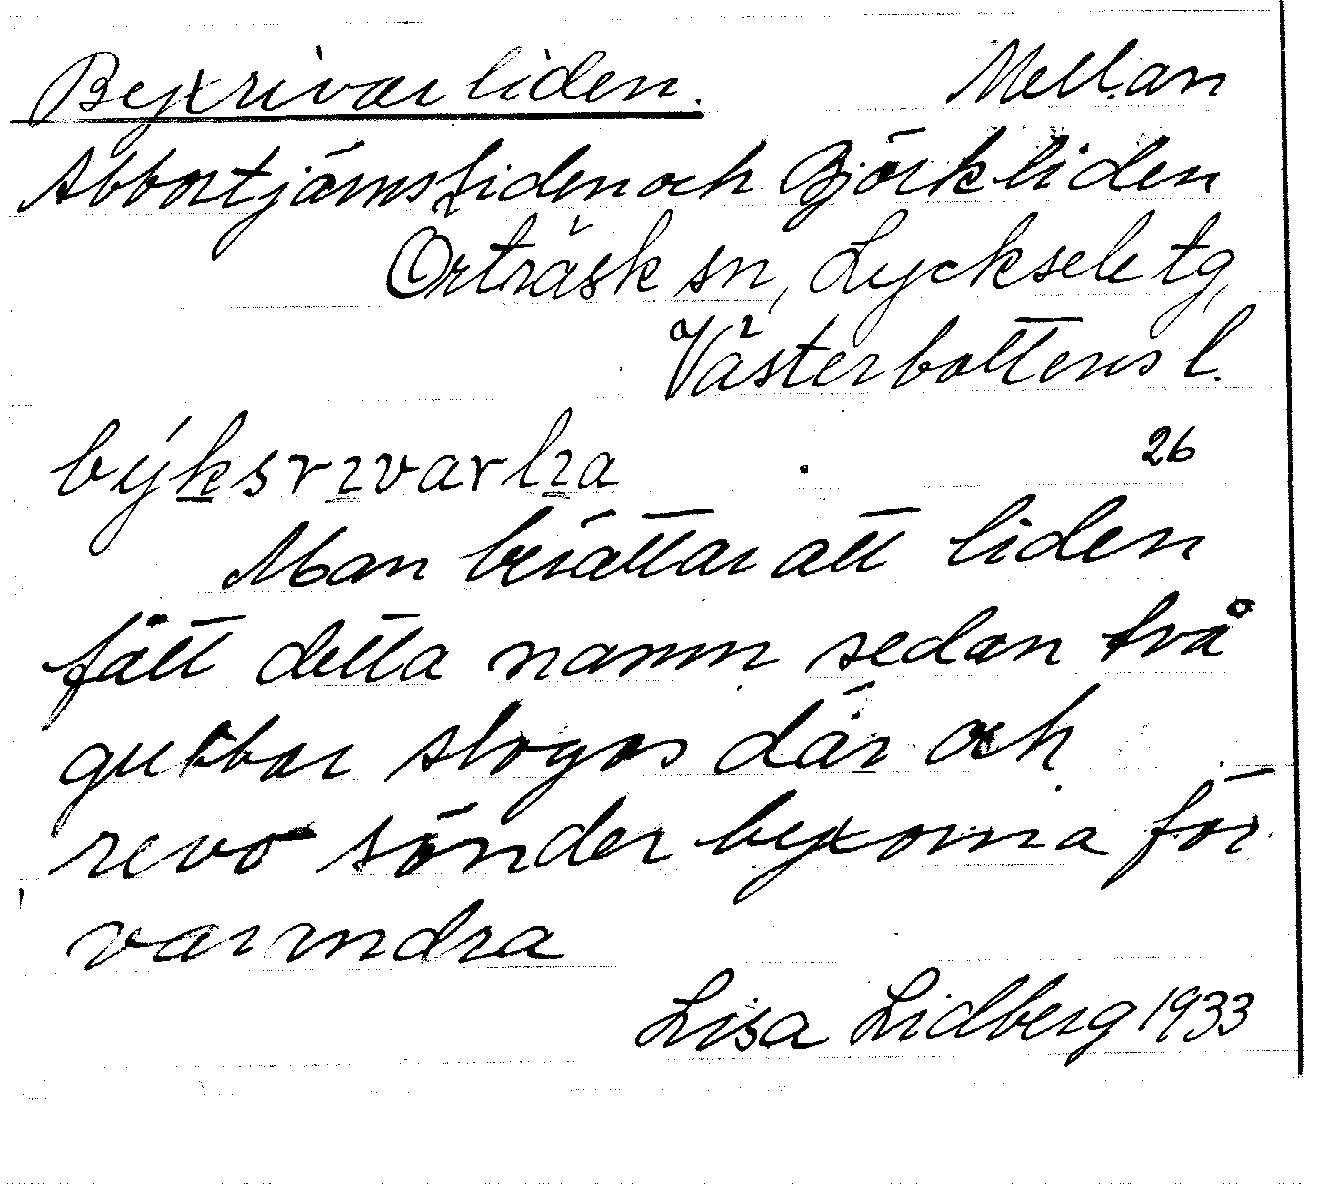 Byxrivarliden. Mellan
Abbortjärnsliden och Björkliden
Örträsk sn, Lycksele tg,
Västerbottens l.
býksrɪvarlɪa 26
Man berättar att liden
fått detta namn sedan två
gubbar slogos där och
revo sönder byxorna för
varandra
Lisa Lidberg 1933